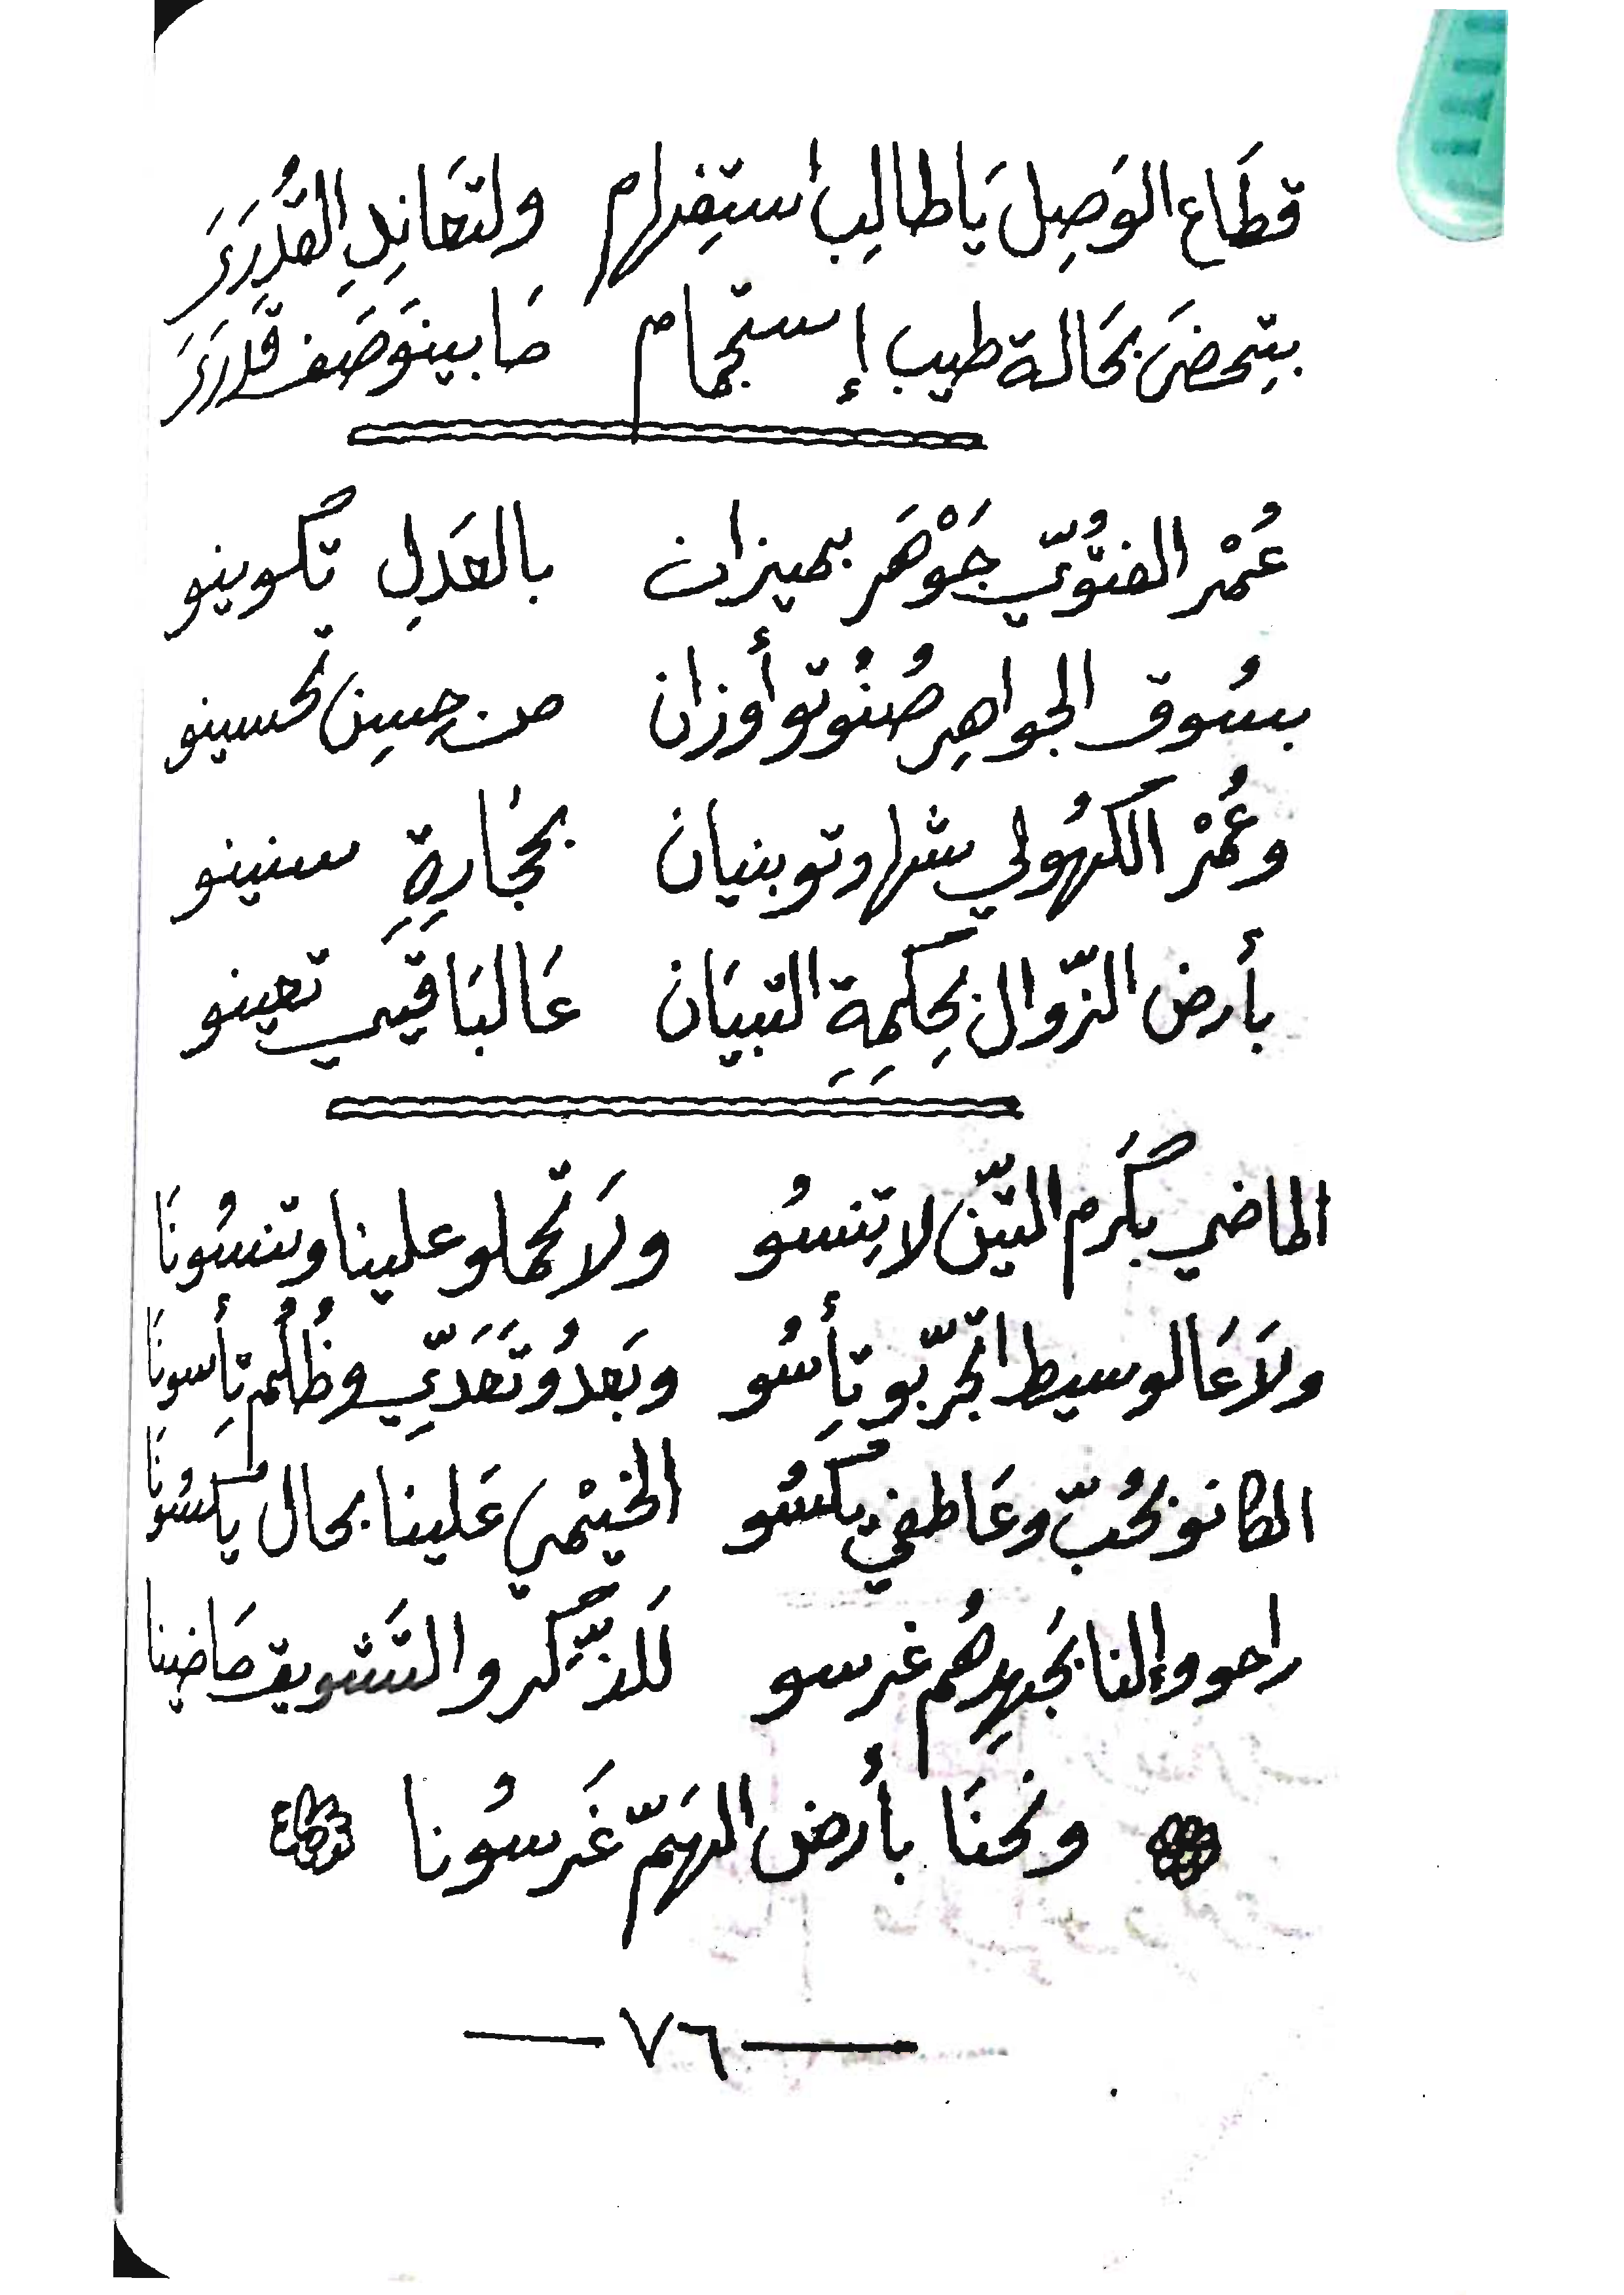 قطَاع الوَصِل يَا طالِب استِفهام ولتعَانِدِ القُدرَىَ
بيِتحضىَ بحَالة طيب إستجمام مَا بينوَصَف قَدرَىَ
عُمْر الفتُوّي جَوْهَر بميزان بالعَدَلِ تكوينو
بسُوق الجواهِر صُنُوتو أوزان من حِسِن تحسينو
وعُمْر الكهُولي شهادتو بنيان بحجَارِةِ سنينو
بأرض الزّوال بحِكمِةِ التبيَان عَالبَاقيي تعينو
الماضي بكَرم التيّن لا تِنسُو ولَا تحملو علينا وتنسُونَا
ولَا عَالوسيط الجرّبو تِأسُو وبَعدُو تَعَدِّي وظُلُم تِأسونَا
الكانو بحُبّ وعَاطفي يكسُو الخيْمي عَلينا بحال يكسُونَا
راحو وإلنا بجَهِدِهُم غرسو لَلذِّكر والتَشويق مَاضينا
ونحنَا بأرض الهَمّ غَرسُونا
٧٦